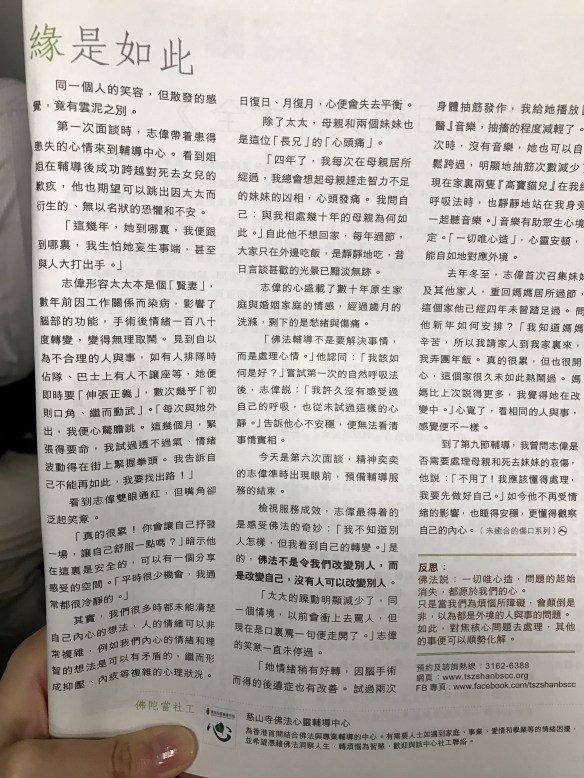 緣是如此
同一個人的笑容，但散發的感
覺，竟有雲泥之別。
第一次面談時，志偉帶着患得
患失的心情來到輔導中心。看到姐
姐在輔導後成功跨越對死去女兒的
歉疚，他也期望可以跳出因太太而
衍生的、無以名狀的恐懼和不安。
「這幾年，她到哪裏，我便跟
到哪裏，我生怕她妄生事端，甚至
與人大打出手。」
志偉形容太太本是個「賢妻」，
數年前因工作關係而染病，影響了
腦部的功能，手術後情緒一百八十
度轉變，變得無理取鬧。見到自以
為不合理的人與事，如有人排隊時
佔隊、巴士上有人不讓座等，她便
即時要「伸張正義」，數次幾乎「初
則口角、繼而動武」。「每次與她外
出，我便心驚膽跳。這幾個月，緊
張得要命，我試過透不過氣、情緒
波動得在街上緊握拳頭。我告訴自
己不能再如此，我要找出路！」
看到志偉雙眼通紅，但嘴角卻
泛起笑意。
「真的很累！你會讓自己抒發
一場，讓自己舒服一點嗎？」暗示他
在這裏是安全的，可以有一個分享
感受的空間。「平時很少機會，我通
常都很冷靜的。」
其實，我們很多時都未能清楚
自己內心的想法，人的情緒可以非
常複雜，例如我們內心的情緒和理
智的想法是可以有矛盾的，繼而形
成抑壓、內疚等複雜的心理狀況。
日復日、月復月，心便會失去平衡。
除了太太，母親和兩個妹妹也
是這位「長兄」的「心頭痛」。
「四年了，我每次在母親居所
經過，我總會想起母親趕走智力不足
的妹妹的凶相，心頭發痛。我問自
己：與我相處幾十年的母親為何如
此。」自此他不想回家，每年過節，
大家只在外邊吃飯，是靜靜地吃，昔
日言談甚歡的光景已黯淡無跡。
志偉的心盛載了數十年原生家
庭與婚姻家庭的情感，經過歲月的
洗滌，剩下的是愁緒與傷痛。
「佛法輔導不是要解決事情，
而是處理心情。」他認同：「我該如
何是好？」嘗試第一次的自然呼吸法
後，志偉說：「我許久沒有感受過
自己的呼吸，也從未試過這樣的心
靜。」告訴他心不安穩，便無法看清
事情實相。
今天是第六次面談，精神奕奕
的志偉準時出現眼前，預備輔導服
務的結束。
檢視服務成效，志偉最得着的
是感受佛法的奇妙：「我不知道別
人怎樣，但我看到自己的轉變。」是
的，佛法不是令我們改變別人，而
是改變自己，沒有人可以改變別人。
「太太的躁動明顯減少了，同
一個情境，以前會衝上去罵人，但
現在是口裏罵一句便走開了。」志偉
的笑意一直未停過。
「她情緒稍有好轉，因腦手術
而得的後遺症也有改善。試過兩次
身體抽筋發作，我給她播放
醫』音樂，抽搐的程度減輕了。
次時，沒有音樂，她也可以自
鬆跨過，明顯地抽筋次數減少了
現在家裏兩隻『高竇貓兒』在我
呼吸法時，也靜靜地站在我身旁
一起聽音樂。」音樂有助眾生心境
定。「一切唯心造」，心靈安頓，
能自如地對應外境。
去年冬至，志偉首次召集妹妹
及其他家人，重回媽媽居所過節，
這個家他已經四年未曾踏足過。問
他新年如何安排？「我知道媽媽
辛苦，所以我請家人到我家裏來，
我弄團年飯。真的很累，但也很開
心，這個家很久未如此熱鬧過。媽
媽比上次說得更多，我覺得她在改
變中。」心寬了，看相同的人與事，
感覺便不一樣。
到了第九節輔導，我曾問志偉是
否需要處理母親和死去妹妹的哀傷，
他說：「不用了！我應該懂得處理，
我要先做好自己。」如今他不再受情
緒的影響，也睡得安穩，更懂得觀察
自己的內心。（未癒合的傷口系列）
反思：
佛法說：一切唯心造，問題的起始
消失，都源於我們的心。
只是當我們為煩惱所障礙，會顛倒是
非，以為都是外境的人與事的問題。
如此，對焦核心問題去處理，其他
的事便可以順勢化解。
預約及諮詢熱線：3162-6388
網頁：www.tszshanbscc.org
FB 專頁：www.facebook.com/tszshanbscc
佛陀當社工
慈山寺佛法心靈輔導中心
為香港首間結合佛法與專業輔導的中心。有需要人士如遇到家庭、事業、愛情和學業等的情緒困擾，
並希望憑藉佛法洞察人生、轉煩惱為智慧，歡迎與該中心社工聯絡。